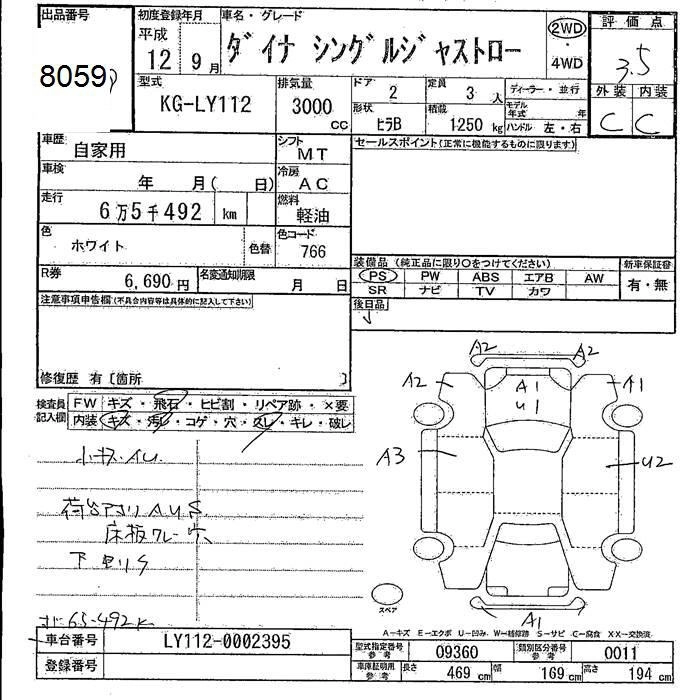 出品番号 初度登録年月 車名・グレード 評価点
8059
平成 12 9月 ダイナ シングルジャストロー 2WD・4WD 3.5
型式 排気量 ドア 2 定員 3人 ディーラー・並行 外装 内装
KG-LY112 3000cc 形状 ヒラB 積載 1250kg モデル年式 年 ハンドル 左・右 C C
車歴 自家用 シフト MT セールスポイント(正常に機能するものに限ります)
車検 年 月( 日) 冷房 AC
走行 6万5千492 km 燃料 軽油
色 ホワイト 色替 色コード 766
装備品 (純正品に限り○をつけてください) 新車保証書
R券 6,690円 名変通知期限 月 日 PS PW ABS エアB AW 有・無
SR ナビ TV カワ
注意事項申告欄(不具合内容等は具体的に記入して下さい) 後日品
修復歴 有 〔箇所 〕
検査員記入欄 FW キズ・飛石・ヒビ割・リペア跡・×要
内装 キズ・汚レ・コゲ・穴・スレ・キレ・破レ
A2 A2
A2 A1 U1 A1
A3 U2
小キズ AU
荷台アオリ AUS
床板ワレ 穴
下回りS
65.492K
スペア
A1
A―キズ E―エクボ U―凹み W―補修跡 S―サビ C―腐食 XX―交換済
車台番号 LY112-0002395
登録番号
型式指定番号 参考 09360 類別区分番号 参考 0011
車庫証明用 参考 長さ 469cm 幅 169cm 高さ 194cm